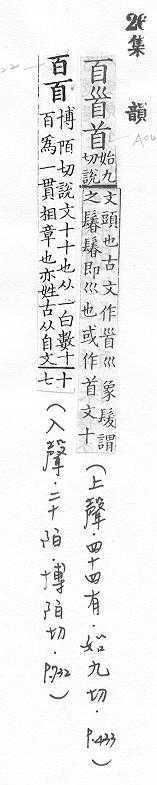 26集 韻
𦣻𩠐首 始九切說文頭也古文作𩠐巛象髮謂之鬊鬊即巛也或作首文十
(上聲．四十四有．始九切．p.433)
百𦣻 博陌切說文十十也从一白數十十百爲一貫相章也亦姓古从自文七
(入聲．二十陌．博陌切．p.732)